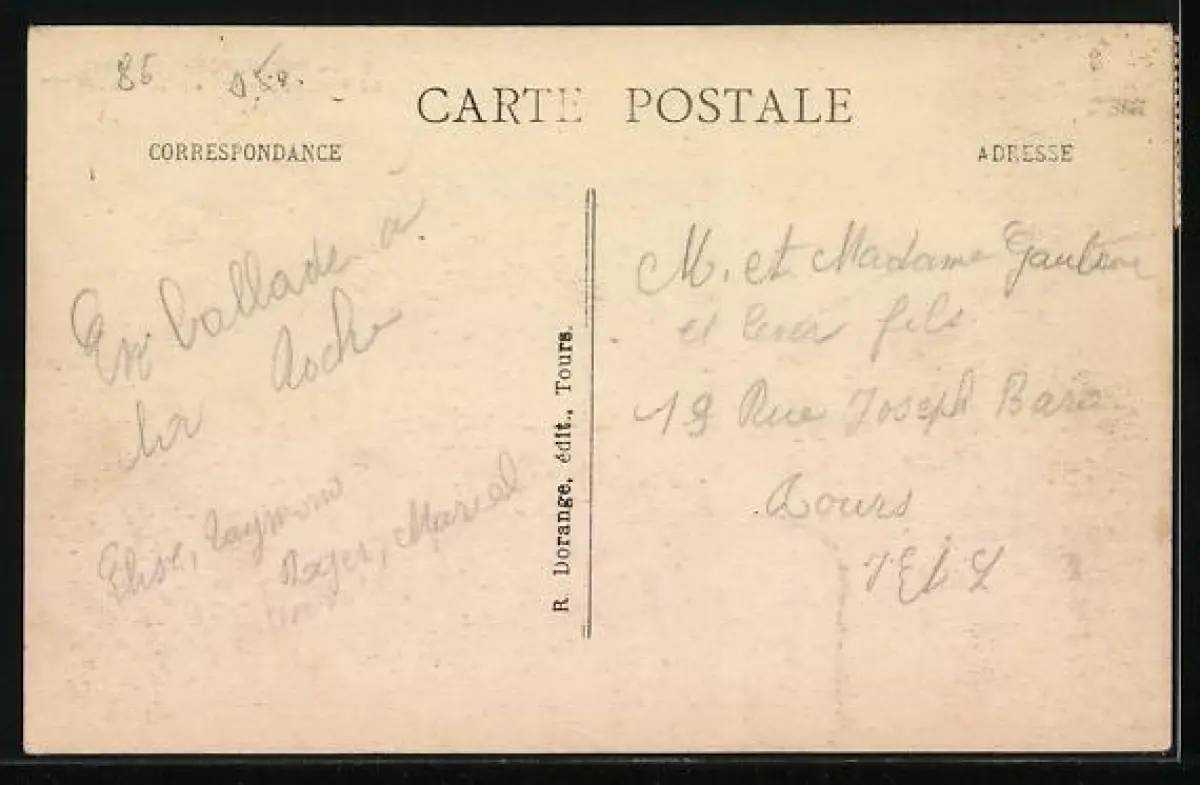 86
CARTE POSTALE
CORRESPONDANCE
ADRESSE
En ballade a
la Roche
Elise, Raymond
Roger, Marcel
R. Dorange, édit., Tours.
M. et Madame
et leur fils
19 Rue Joseph Bara
Tours
I et L